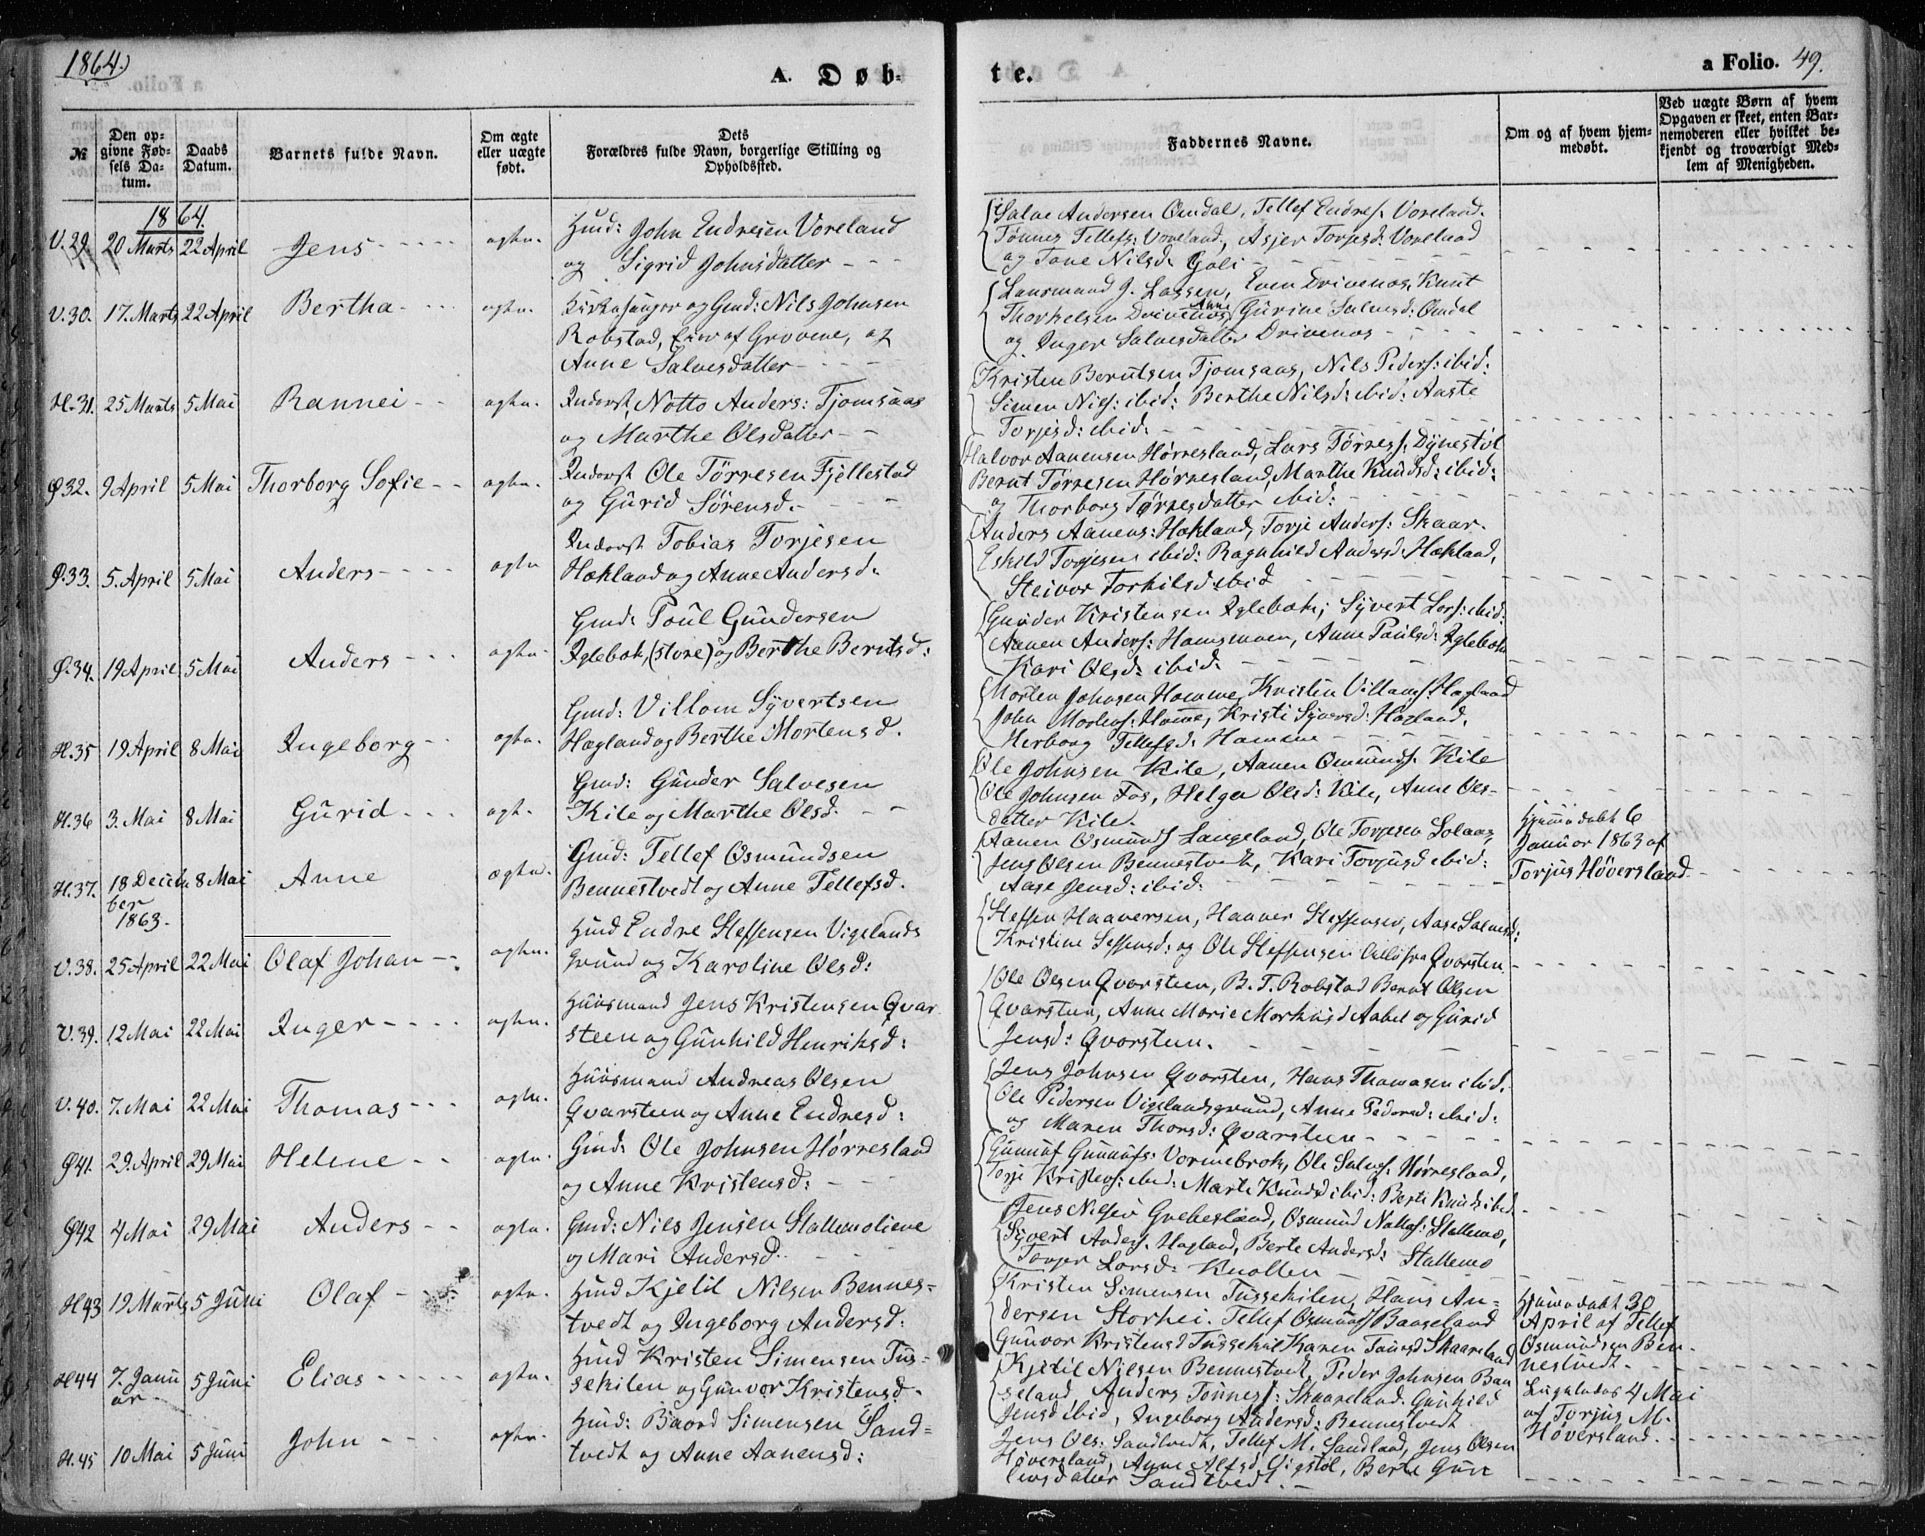 1864.
A. Døb-
te.
a Folio. 49.
№
Den op-
givne Fød-
sels Da-
tum.
Daabs
Datum.
Barnets fulde Navn.
Om ægte
eller uægte
født.
Dets
Forældres fulde Navn, borgerlige Stilling og
Opholdssted.
Faddernes Navne.
Om og af hvem hjem-
medøbt.
Ved uægte Børn af hvem
Opgaven er skeet, enten Bar-
nemoderen eller hvilket be-
kjendt og troværdigt Med-
lem af Menigheden.
1864.
V. 29. 20 Marts 22 April Jens ægte.
Huusd: John Endresen Voreland
og Sigrid Johnsdatter
Salve Andersen Omdal, Tellef Endres. Voreland.
Tønnes Tellefs: Voreland, Asjer Torjesd: Voreland
og Tone Nilsd. Goli
V. 30. 17. Marts 22 April Bertha ægte.
Kirkesanger og Gmd: Nils Johnsen
Robstad, Eier af Grovene, og
Anne Salvesdatter
Lensmand J. Lassen, Even Drivenes, Knut
Thorkelsen Drivenes, Anne Gurine Salvesd: Omdal
og Inger Salvesdatter Drivenes
H. 31. 25 Marts 5 Mai Rannei ægte.
Inderst, Notto Anders: Tjomsaas
og Marthe Olsdatter
Kristen Berntsen Tjomsaas, Nils Peders: ibid:
Simen Nils: ibid: Berthe Nilsd: ibid: Aaste
Torjesd: ibid:
Ø 32. 9 April 5 Mai Thorborg Sofie ægte.
Inderst Ole Tørresen Fjellestad
og Gurid Sørensd.
Halvor Aanensen Hørresland, Lars Tørress: Dynestøl
Bernt Tørresen Hørresland, Marthe Knudsd: ibid:
og Thorborg Tørresdatter ibid:
Ø. 33. 5. April 5 Mai Anders ægte
Inderst Tobias Torjesen
Hækland og Anne Andersd.
Anders Aanens: Hækland, Torje Anders: Skaar.
Eskild Torjesen ibid: Ragnhild Andersd. Hækland,
Steivor Torkilsd: ibid
Ø. 34. 19 April 5 Mai Anders ægte
Gmd. Poul Gundersen
Iglebæk, (store) og Berthe Berntsd:
Gunder Kristensen Iglebæk, Syvert Lars: ibid:
Aanen Anders: Homsmoen, Anne Paulsd: Iglebæk
Kari Olsd. ibid:
H. 35 19 April 8 Mai Ingeborg ægte.
Gmd: Villom Syvertsen
Hægland og Berthe Mortensd.
Morten Johnsen Homme, Kristen Villoms. Hægland
John Mortens: Homme, Kristi Syversd: Hægland.
Herborg Tellefsd. Homme
H. 36 3. Mai 8 Mai Gurid ægte.
Gmd: Gunder Salvesen
Kile og Marthe Olsd.
Ole Johnsen Kile, Aanen Osmunds. Kile
Ole Johnsen Fos, Helga Olsd: Kile, Anne Ols-
datter Kile.
H. 37. 18 Decem
ber
1863. 8 Mai Anne ægte.
Gmd: Tellef Osmundsen
Bennestvedt og Anne Tellefsd.
Aanen Osmunds Langeland, Ole Torjesen Solaas,
Jens Olsen Bennestvedt, Kari Torjusd ibid:
Aase Jensd: ibid:
Hjemmedøbt 6
Januar 1863 af
Torjus Høversland
V. 38. 25 April 22 Mai Olaf Johan ægte.
Huusd Endre Steffensen Vigelands
Grund og Karoline Olsd:
Steffen Haaversen, Haaver Steffensen, Aase Salvesd:
Kristine Steffensd: og Ole Steffensen alle fra Qvarsten
V. 39. 12 Mai 22 Mai Inger ægte.
Huusmand Jens Kristensen Qvar
steen og Gunhild Henriksd:
Ole Olsen Qvarsteen, B. T. Robstad Bernt Olsen
Qvarsteen, Anne Marie Markusd Aabel og Gurid
Jensd: Qvarsteen.
V. 40. 7. Mai 22 Mai Thomas ægte.
Huusmand Andreas Olsen
Qvarsteen og Anne Endresd:
Jens Johnsen Qvarsten, Hans Thomasen ibid.
Ole Pedersen Vigelandsgrund, Anne Pedersd: ibid:
og Maren Thorsd: Qvarsteen
Ø 41. 29. April 29 Mai Helene ægte.
Gmd. Ole Johnsen Hørresland
og Anne Kristensd:
Gunnuf Gunnufs: Vormebrok, Ole Salves. Hørresland,
Torje Kristens: ibid: Marte Knudsd ibid: Berte Knuds ibid
Ø 42 4 Mai 29 Mai Anders ægte.
Gmd: Nils Jensen Stallemoliene
og Mari Andersd.
Jens Nilsen Grebesland, Osmund Nottos: Stallemo,
Syvert Anders. Hægland, Berte Andersd: Stallemo
Torjer Larsd. Knollen
H 43 19 Marts 5 Juni Olaf ægte.
Huusd Kjetil Nilsen Bennes-
tvedt og Ingeborg Andersd:
Kristen Simensen Tussekilen, Hans An-
dersen Storhei. Tellef Osmunds Baaseland
Gunvor Kristensd Tussekil Karen Tønnesd Skaareland
Hjemmedøbt 30
April af Tellef
Osmundsen Ben-
nestvedt.
H 44 7. Janu
ar 5 Juni Elias ægte.
Huusd Kristen Simensen Tus-
sekilen og Gunvor Kristensd.
Kjetil Nilsen Bennestvedt, Peder Johnsen Baa
seland, Anders Tønnes: Skaareland. Gunhild
Jensd ibid, Ingeborg Andersd: Bennestvedt
Ligeledes 4 Mai
af Torjus M.
Høversland.
H. 45 10 Mai 5 Juni John ægte.
Huusd: Baard Simensen Sand-
tvedt og Anne Aanensd:
Jens Ols: Sandtvedt, Tellef M. Sandland, Jens Olsen
Høversland, Anne Alfsd. Vigstøl, Berte Gun
leusdatter Sandtvedt.